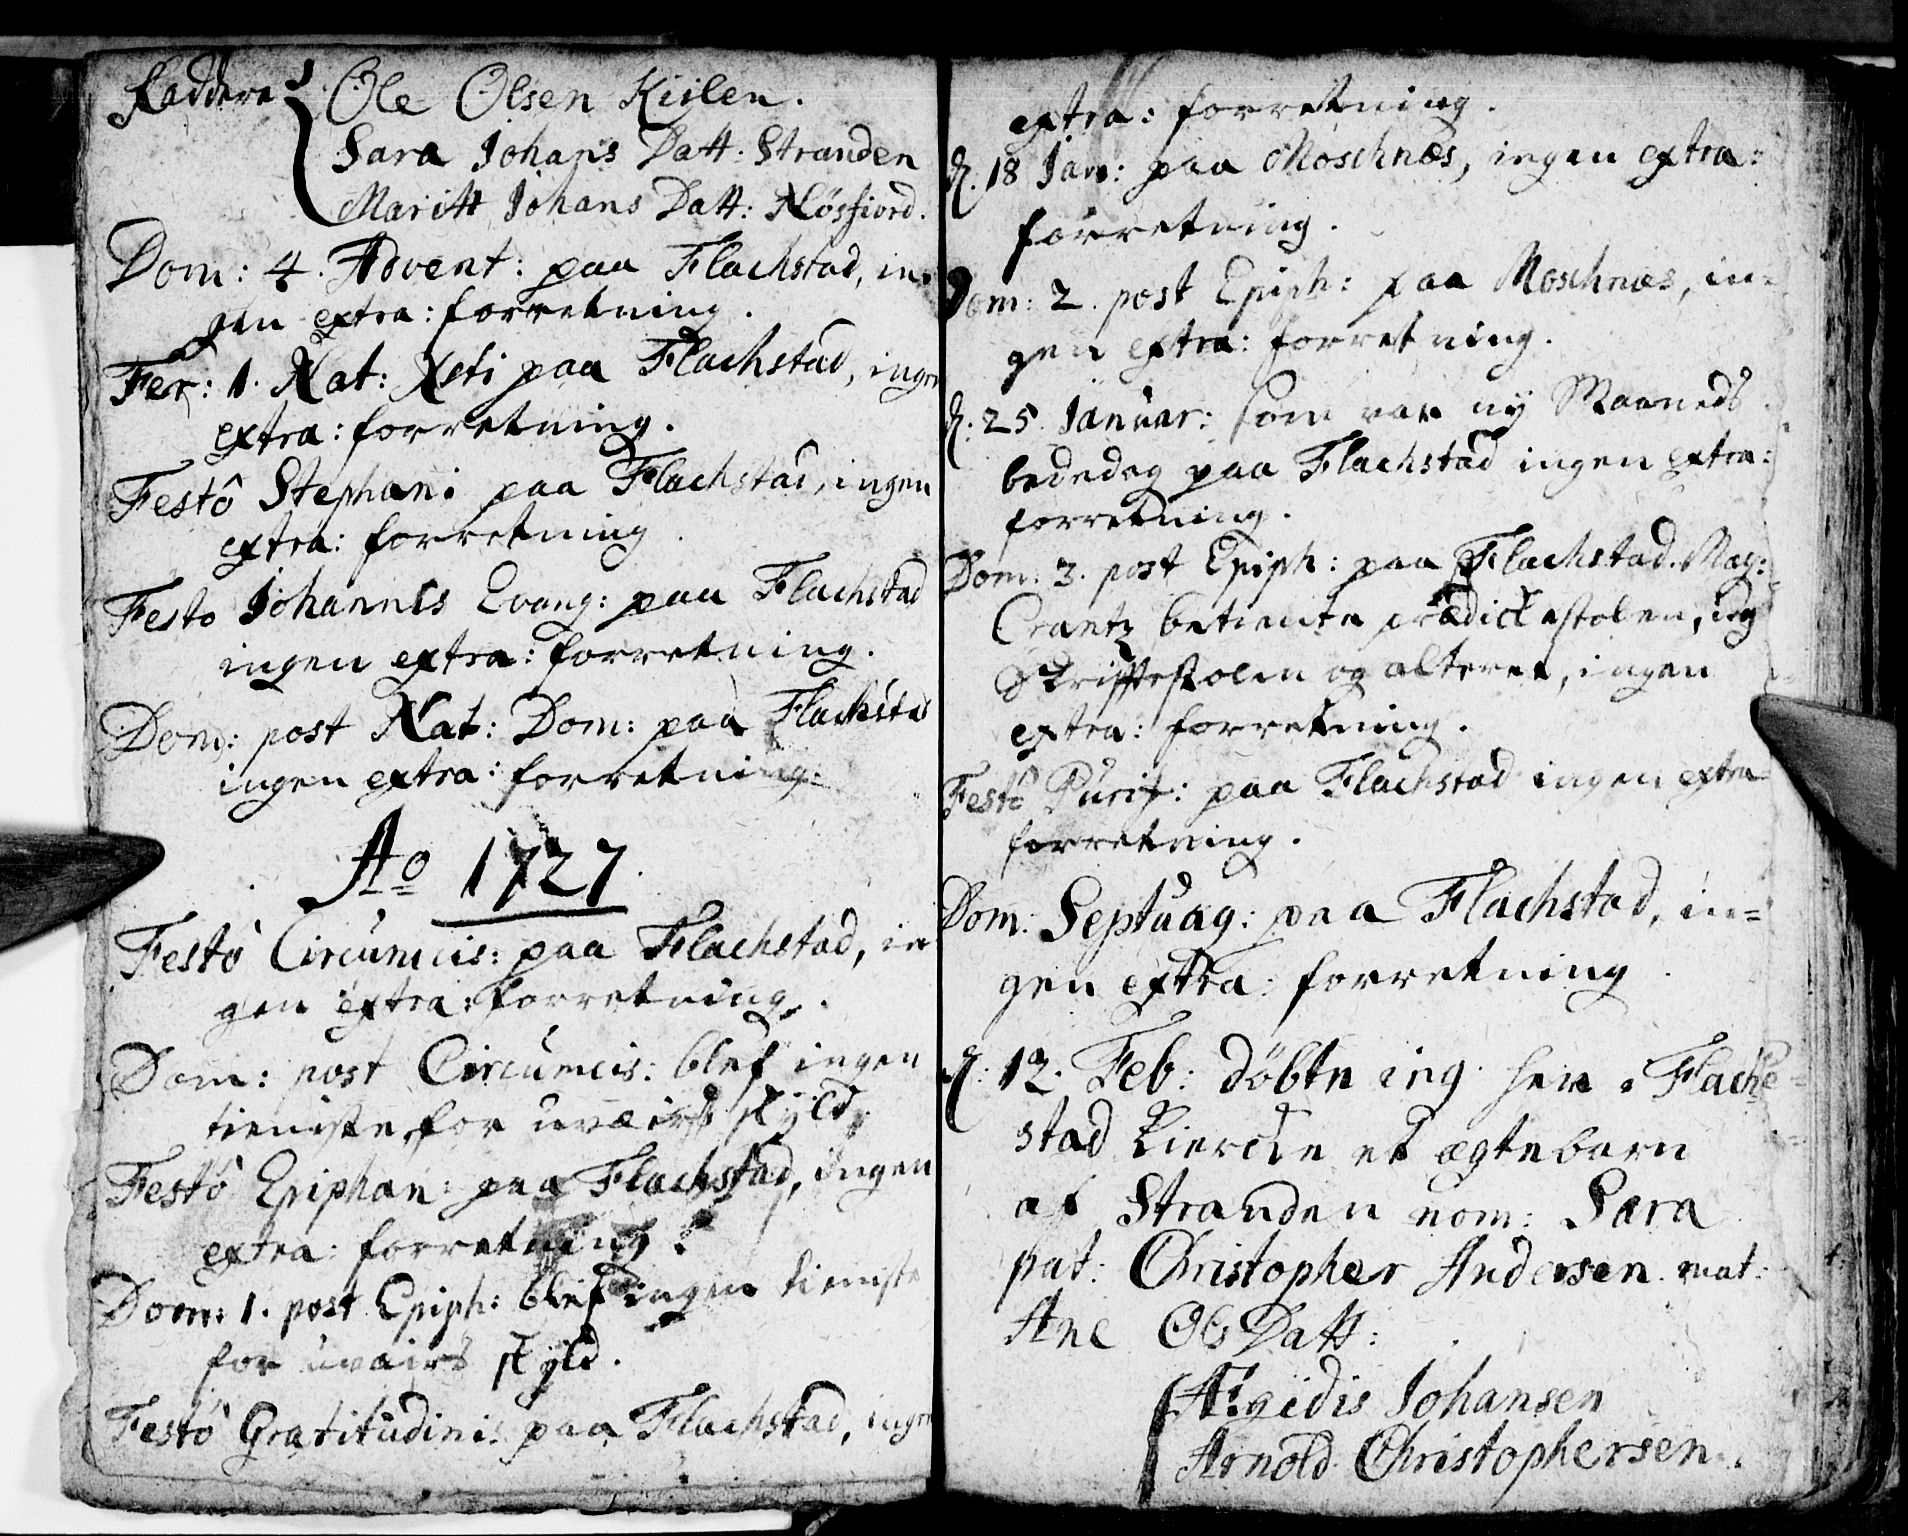 Faddere Ole Olsen Kiilen.
Sara Johans Datt: Stranden
Maritt Johans Datt: Nøsfiord.
Dom: 4. Advent: paa Flachstad, in-
gen extra: forretning.
Fer: 1. Nat: Xsti paa Flachstad, ingen
extra: forretning.
Festô Stephani paa Flachstad, ingen
extra: forretning.
Festo Johannis Evang: paa Flachstad
ingen extra: forretning.
Dom: post Nat: Dom: paa Flachstad
ingen extra: forretning.
Ao 1727.
Festô Circumcis: paa Flachstad, in
gen extra: forretning.
Dom: post Circumcis: blef ingen
tieniste for uvæirs skyld.
Festô Epiphan: paa Flachstad, ingen
extra: forretning.
Dom: 1. post Epiph: blef ingen tieniste
for uvairs skyld.
Festô Gratitudinis paa Flachstad, ingen
extra: forretning.
d. 18 Jan: paa Moschnæs, ingen extra:
forretning.
Dom: 2. post Epiph: paa Moschnæs, in-
gen extra: forretning.
d. 25. Januar: som var ny Maaneds
bededag paa Flachstad ingen extra:
forretning.
Dom: 3. post Epiph: paa Flachstad. Mag:
Crantz betiente prædickestolen, ieg
Skriftestolen og alteret, ingen
extra: forretning.
Festô Purif: paa Flachstad ingen extra
forretning.
Dom: Septuag: paa Flachstad, in-
gen extra: forretning.
d. 12. Feb: döbte ieg her i Flach-
stad Kiercke et ægtebarn
af Stranden nom: Sara
pat: Christopher Andersen. mat:
Ane Ols Datt:
Ægidis Johansen
Arnold Christophersen.